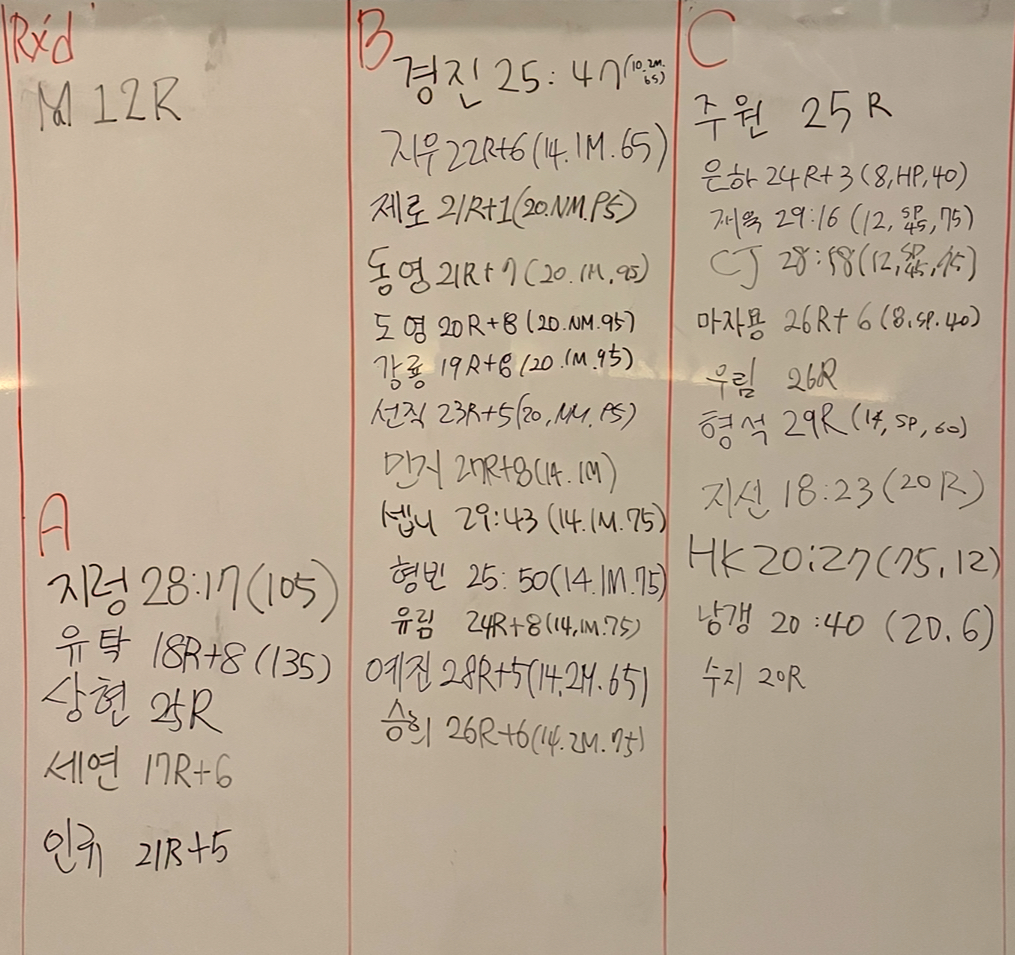 Rx'd
M 12R
A
지렁 28:17(105)
유탁 18R+8 (135)
상현 25R
세연 17R+6
인규 21R+5
B
경진 25:47(10.2M.65)
지우 22R+6(14.1M.65)
제로 21R+1(20.NM.95)
동영 21R+7(20.1M.95)
도영 20R+8(20.NM.95)
강룡 19R+8(20.1M.95)
선직 23R+5(20,NM.95)
먼저 27R+8(14.1M)
셉니 29:43(14.1M.75)
형빈 25:50(14.1M.75)
유림 24R+8(14,1M.75)
예진 28R+5(14.2M.65)
승희 26R+6(14.2M.75)
C
주원 25R
은하 24R+3(8,HP,40)
재욱 29:16(12,SP45,75)
CJ 28:58(12,SP45,75)
마자용 26R+6(8.SP.40)
우림 26R
형석 29R(14,SP,60)
지선 18:23(20R)
HK 20:27(75,12)
낭갱 20:40(20.6)
수지 20R